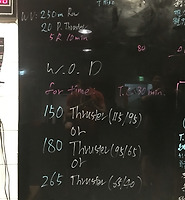 W.U: 250m Row
20 P. Thruster
5 R. 10 min
80
W.O.D
for time: T.C 30 min.
150 Thruster (115/95)
or
180 Thruster (95/65)
or
265 Thruster